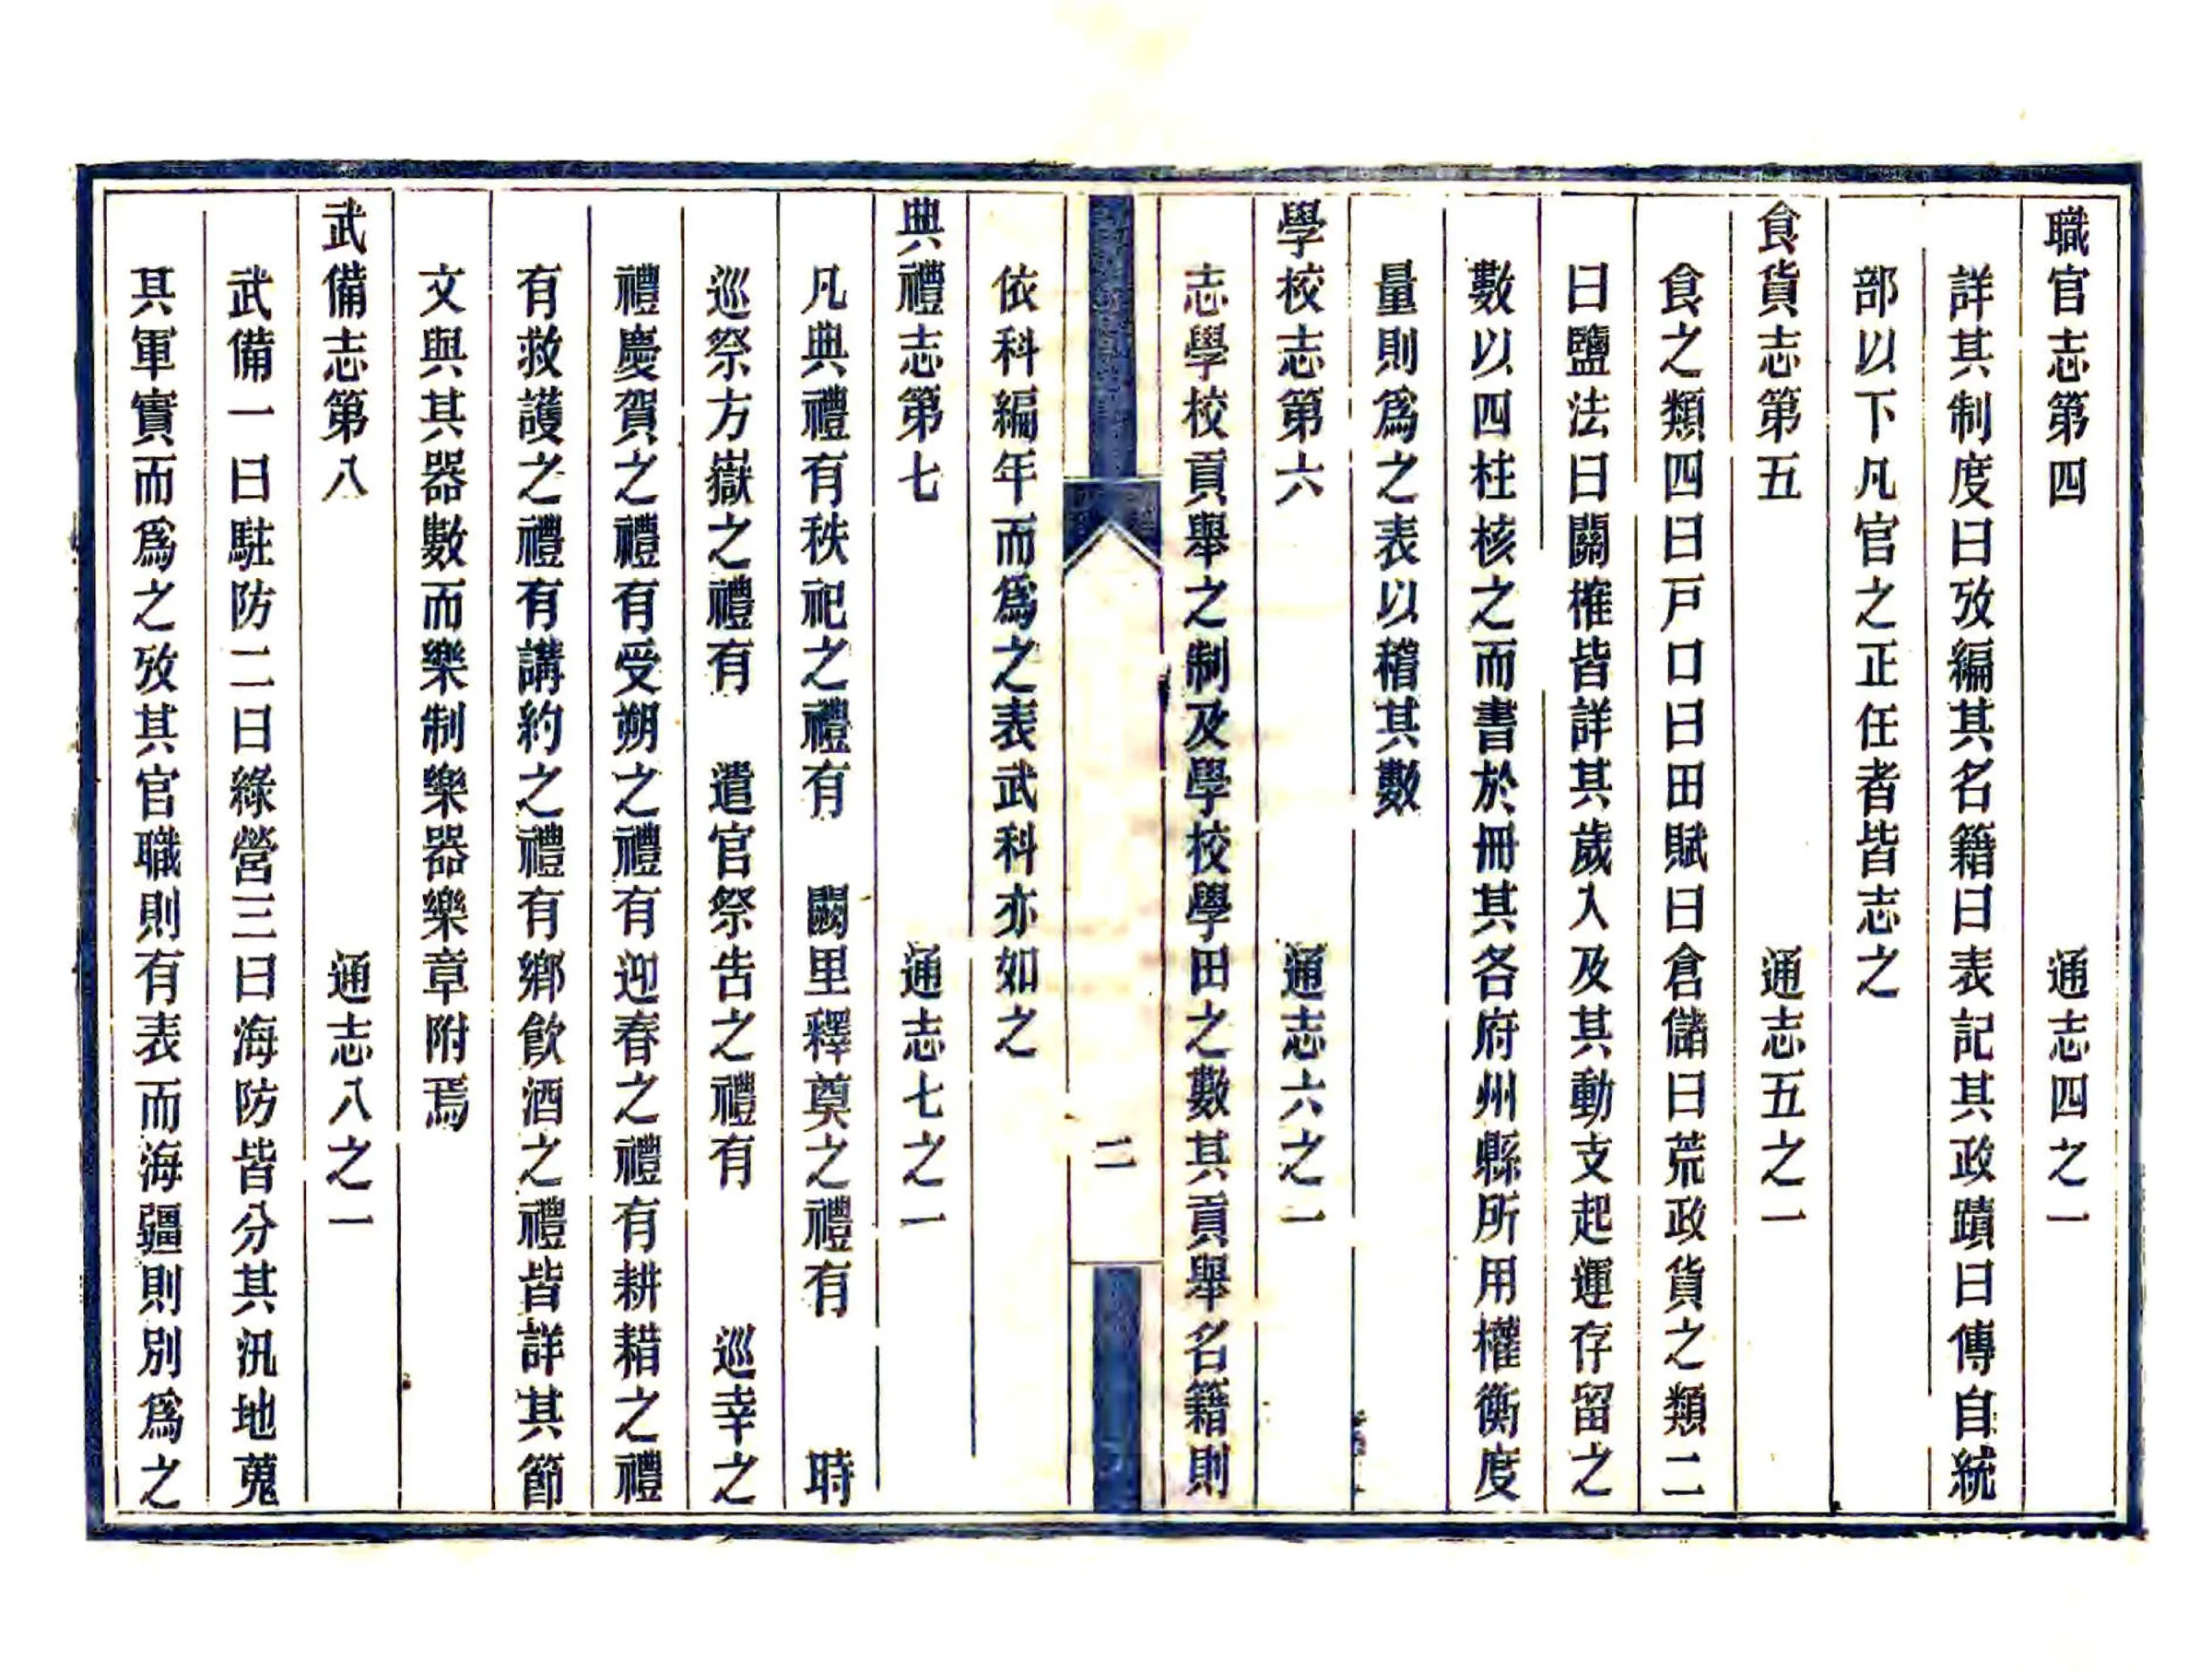 職官志第四　通志四之一
詳其制度曰攷編其名籍曰表記其政蹟曰傳自統
部以下凡官之正任者皆志之
食貨志第五　通志五之一
食之類四曰戸口曰田賦曰倉儲曰荒政貨之類二
曰鹽法曰關榷皆詳其歲入及其動支起運存留之
數以四柱核之而書於冊其各府州縣所用權衡度
量則爲之表以稽其數
學校志第六　通志六之一
志學校貢舉之制及學校學田之數其貢舉名籍則
二
依科編年而爲之表武科亦如之
典禮志第七　通志七之一
凡典禮有秩祀之禮有　闕里釋奠之禮有　時
巡祭方嶽之禮有　遣官祭告之禮有　巡幸之
禮慶賀之禮有受朔之禮有迎春之禮有耕耤之禮
有救護之禮有講約之禮有鄉飮酒之禮皆詳其節
文與其器數而樂制樂器樂章附焉
武備志第八　通志八之一
武備一曰駐防二曰綠營三曰海防皆分其汛地蒐
其軍實而爲之攷其官職則有表而海疆則別爲之